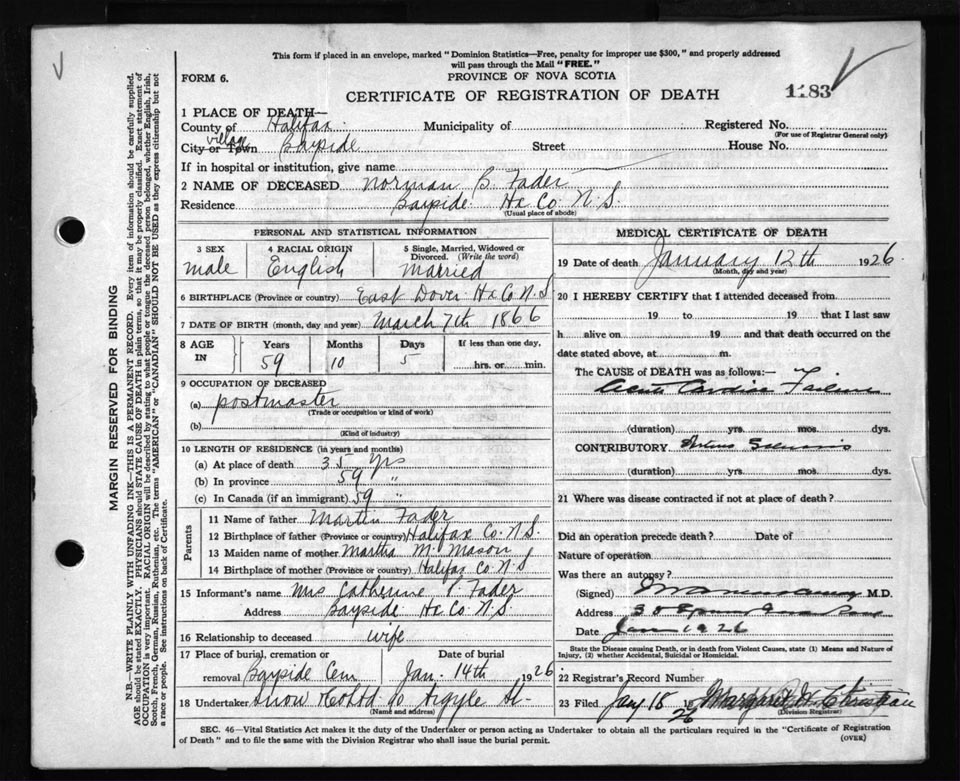 This form if placed in an envelope, marked "Dominion Statistics—Free, penalty for improper use $300," and properly addressed
will pass through the Mail "FREE."
FORM 6.
PROVINCE OF NOVA SCOTIA
CERTIFICATE OF REGISTRATION OF DEATH
1183
1 PLACE OF DEATH—
County of Halifax Municipality of Registered No.
(For use of Registrar General only)
village
City or Town Bayside Street House No.
If in hospital or institution, give name
2 NAME OF DECEASED Norman B. Fader
Residence Bayside Hx Co. N.S.
(Usual place of abode)
PERSONAL AND STATISTICAL INFORMATION
3 SEX
male
4 RACIAL ORIGIN
English
5 Single, Married, Widowed or
Divorced. (Write the word)
Married
6 BIRTHPLACE (Province or country) East Dover Hx Co N.S
7 DATE OF BIRTH (month, day and year) March 7th 1866
8 AGE IN
Years Months Days If less than one day,
59 10 5 hrs. or min.
9 OCCUPATION OF DECEASED
(a) postmaster
(Trade or occupation or kind of work)
(b)
(Kind of industry)
10 LENGTH OF RESIDENCE (in years and months)
(a) At place of death 35 yrs
(b) In province 59 "
(c) In Canada (if an immigrant) 59 "
Parents
11 Name of father Martin Fader
12 Birthplace of father (Province or country) Halifax Co. N.S.
13 Maiden name of mother Martha M. Mason
14 Birthplace of mother (Province or country) Halifax Co N.S.
15 Informant's name Mrs Catherine P. Fader
Address Bayside Hx Co. N.S.
16 Relationship to deceased wife
17 Place of burial, cremation or Date of burial
removal Bayside Cem Jan. 14th 1926
18 Undertaker Snow Argyle St.
(Name and address)
MEDICAL CERTIFICATE OF DEATH
19 Date of death January 12th 1926.
(Month, day and year)
20 I HEREBY CERTIFY that I attended deceased from
19 to 19 that I last saw
h alive on 19 and that death occurred on the
date stated above, at m.
The CAUSE of DEATH was as follows:
Acute Cardiac Failure
(duration) yrs. mos. dys.
CONTRIBUTORY
(duration) yrs. mos. dys.
21 Where was disease contracted if not at place of death?
Did an operation precede death? Date of
Nature of operation
Was there an autopsy?
(Signed) M.D.
Address
Date Jan 1926
State the Disease causing Death, or in death from Violent Causes, state (1) Means and Nature of
Injury, (2) whether Accidental, Suicidal or Homicidal.
22 Registrar's Record Number
23 Filed Jany 18 1926 Margaret H. Christian
(Division Registrar)
SEC. 46—Vital Statistics Act makes it the duty of the Undertaker or person acting as Undertaker to obtain all the particulars required in the "Certificate of Registration
of Death" and to file the same with the Division Registrar who shall issue the burial permit.
(OVER)
MARGIN RESERVED FOR BINDING
N.B.—WRITE PLAINLY WITH UNFADING INK—THIS IS A PERMANENT RECORD. Every item of information should be carefully supplied.
AGE should be stated EXACTLY. PHYSICIANS should STATE CAUSE OF DEATH in plain terms, so that it may be properly classified. Exact statement of
OCCUPATION is very important. RACIAL ORIGIN will be described by stating to what people or tongue the deceased person belonged, whether English, Irish,
Scotch, French, German, Russian, Ruthenian, etc. The terms "AMERICAN" or "CANADIAN" SHOULD NOT BE USED as they express citizenship but not
a race or people. See instructions on back of Certificate.